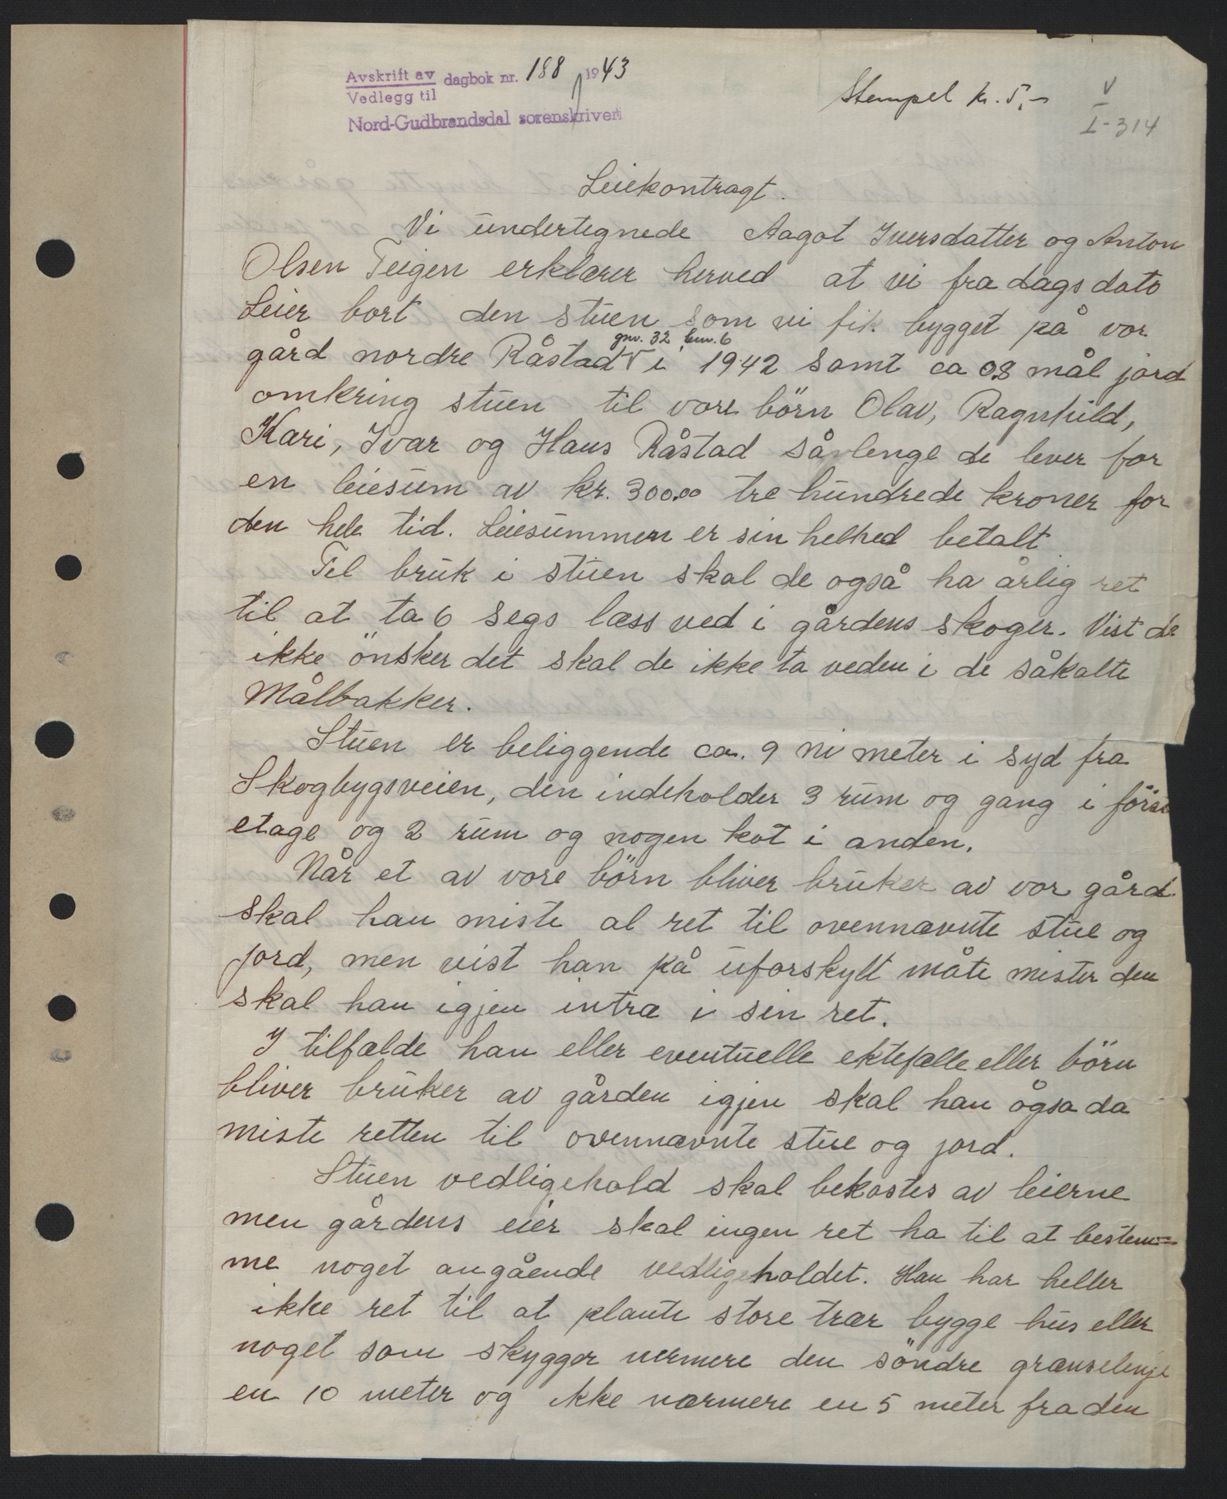 Avskrift av dagbok nr. 188 1943
Vedlegg til
Nord-Gudbrandsdal sorenskriveri
Stempel kr. 5,-
V
I-314
Leiekontragt.
Vi undertegnede Aagot Iversdatter og Anton
Olsen Teigen erklærer herved at vi fra dags dato
Leier bort den stuen som vi fik bygget på vor
gnr. 32 bnr. 6
gård nordre Råstad i 1942 samt ca 0,8 mål jord
omkring stuen til vore börn Olav, Ragnhild,
Kari, Ivar og Hans Råstad sålenge de lever for
en leiesum av kr. 300.00 tre hundrede kroner for
den hele tid. Leiesummen er sin helhed betalt
Til bruk i stuen skal de også ha årlig ret
til at ta 6 segs læss ved i gårdens skoger. Vist de
ikke önsker det skal de ikke ta veden i de såkalte
Målbakker.
Stuen er beliggende ca. 9 ni meter i syd fra
Skogbygsveien, den indeholder 3 rum og gang i förs
etage og 2 rum og nogen kot i anden.
Når et av vore börn bliver bruker av vor gård
skal han miste al ret til ovennævnte stue og
jord, men vist han på uforskylt måte mister den
skal han igjen intra i sin ret.
I tilfælde han eller eventuelle ektefælle eller börn
bliver bruker av gården igjen skal han ågsa da
miste retten til ovennævnte stue og jord.
Stuen vedligehold skal bekostes av leierne
men gårdens eier skal ingen ret ha til at bestem=
me noget angående vedligeholdet. Han har heller
ikke ret til at plante store trær bygge hus eller
noget som skygger nermere den söndre grænselinje
en 10 meter og ikke nærmere en 5 meter fra den